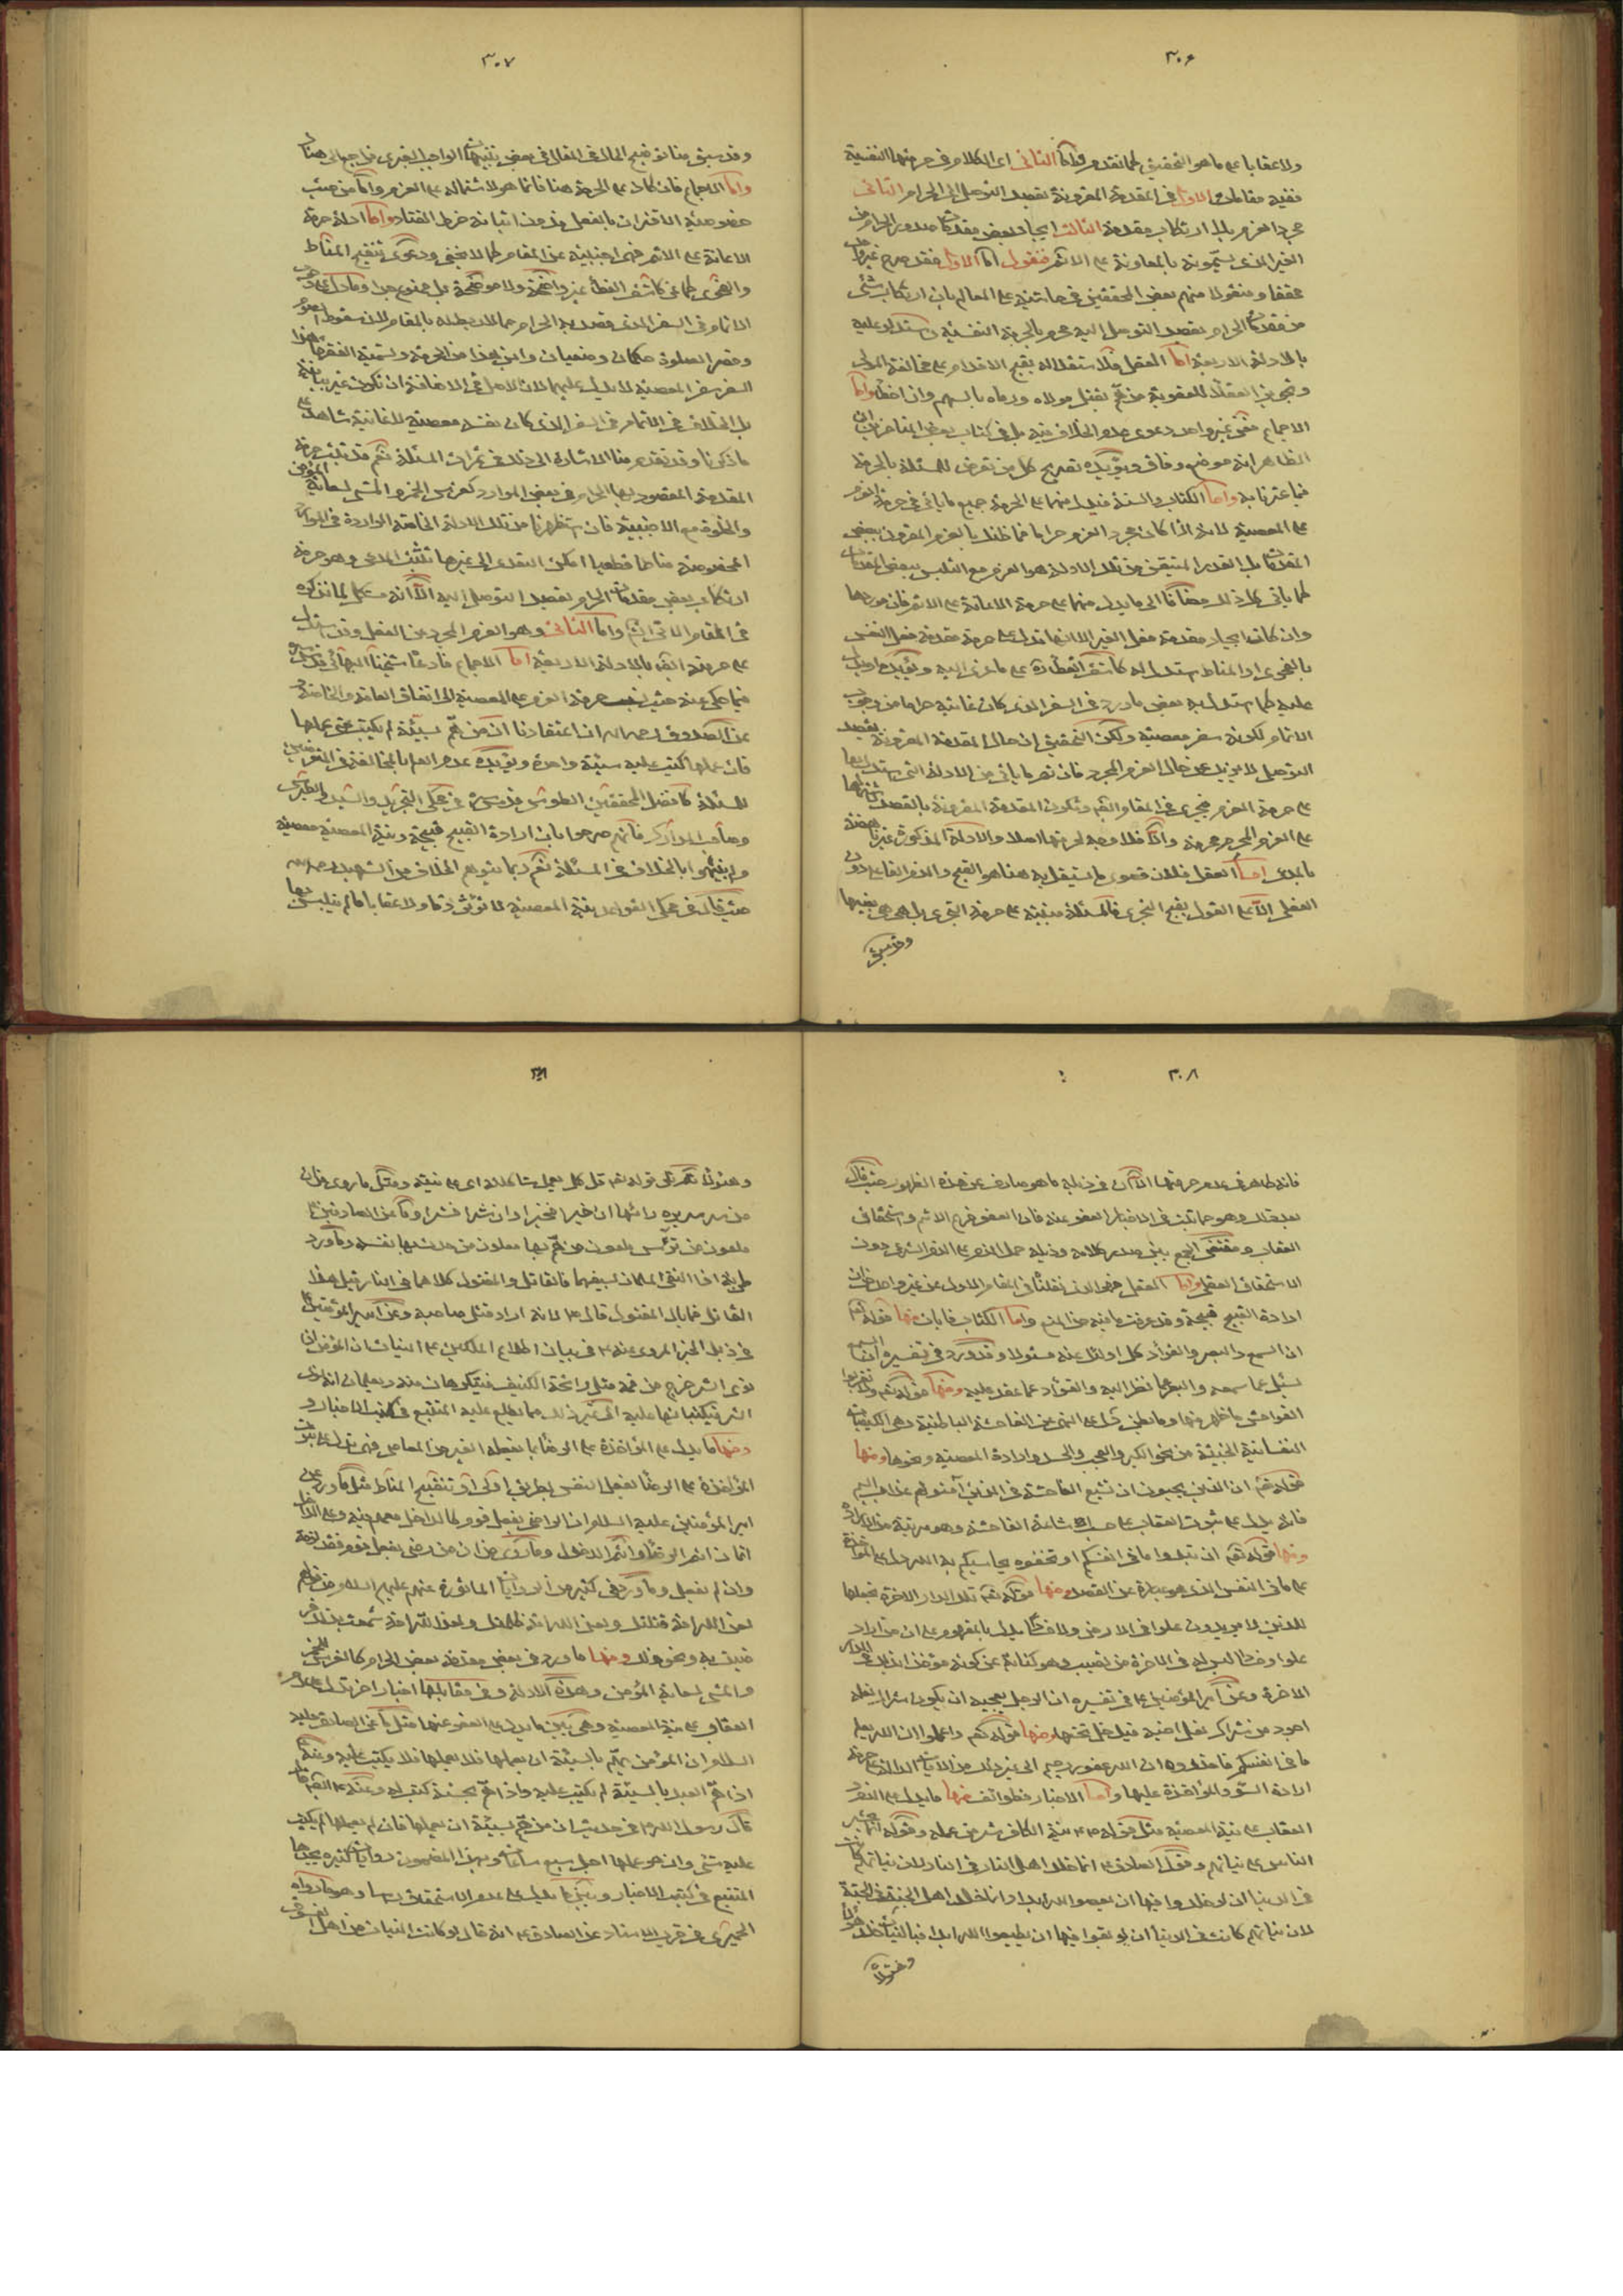 ٣٠٦
ولا عقابا على ما هو التحقيق كما تقدم واما الثانى اى الكلام فى حرمتها النفسية
ففيه مقامات الاول فى المقدمة المقرونة بقصد التوصل الى الحرام الثانى
مجرد العزم بلا ارتكاب مقدمة الثالث ايجاد بعض مقدمات صدور الحرام من
الغير الذى يسمونه بالمعاونة على الاثم فنقول اما الاول فقد صرح غير واحد
محققا ومنقولا منهم بعض المحققين فى حاشيته على المعالم بان ارتكاب شئ
من مقدمات الحرام بقصد التوصل اليه محرم بالحرمة النفسية واستدلوا عليه
بالادلة الاربعة اما العقل فلاستقلاله بقبح الاقدام على مخالفة المولى
وتجويز العقلاء للعقوبة من هم بقتل مولاه ورماه بالسهم وان اخطأ واما
الاجماع فعن غير واحد دعوى عدم الخلاف فيه بل فى كتاب بعض المتأخرين ان
الظاهر انه موضع وفاق ويؤيده تصريح كل من تعرض للمسئلة بالحرمة
فيما عثرنا به واما الكتاب والسنة فيدل منهما على الحرمة جميع ما يأتى فى حرمة العزم
على المعصية لانه اذا كان مجرد العزم حراما فما ظنك بالعزم المقرون ببعض
المقدمات بل القدر المتيقن من تلك الادلة هو العزم مع التلبس ببعض المقدمات
كما يأتى كل ذلك مضافا الى ما يدل منهما على حرمة الاعانة على الاثم فان موردها
وان كانت ايجاد مقدمة فعل الغير الا انها تدل على حرمة مقدمة فعل النفس
بالفحوى او المناط استدل له كاشف الغطاء على ما عزى اليه ويؤيده او يدل
عليه كما استدل به بعض ما ورد فى السفر الذى كان غايته حراما من وجوب
الاتمام لكونه سفر معصية ولكن التحقيق ان حال المقدمة المقرونة بقصد
التوصل لا يزيد عن حال العزم المجرد فان تم ما يأتى من الادلة التى استدل بها
على حرمة العزم فيجرى فى المقام ايضا وتكون المقدمة المقرونة بالقصد
على العزم المجرد محرمة والا فلا وجه لحرمتها اصلا والادلة المذكورة غير ناهضة
بالمدعى اما العقل فلان دعوى ما يستقل به هنا هو القبح والذم الفاعلى دون
الفعلى الا على القول بقبح التجرى فالمسئلة مبنية على حرمة التجرى بل هى هى بعينها
وقد سبق
٣٠٧
وقد سبق منا توضيح الحال فى المقال فى بعض تنبيهات الواجب الغيرى فراجع الى هناك
واما الاجماع فان كان على الحرمة هنا فانما هو لاشتماله على العزم واما من حيث
خصوصية الاقتران بالفعل فدون اثباته خرط القتاد واما ادلة حرمة
الاعانة على الاثم فهى اجنبية عن المقام كما لا يخفى ودعوى تنقيح المناط
والفحوى كما عن كاشف الغطاء غير واضحة ولا موضحة بل ممنوع جدا وما دل على وجوب
الاتمام فى السفر الذى قصد به الحرام مما لا ربط له بالمقام لان سقوط الصوم
وقصر الصلوة حكمان وضعيان واين هذا من الحرمة وتسمية الفقهاء هذا
السفر سفر المعصية لا يدل عليها لان الاصل فى الاضافة ان تكون غير بيانية
بل الخلاف فى الاتمام فى السفر الذى كان نفسه معصية للغاية شاهد على
ما ذكرنا وقد تقدم منا الاشارة الى ذلك فى ثمرات المسئلة نعم قد ثبت حرمة
المقدمة المقصود بها الحرام فى بعض الموارد كغرس الخمر والمشى لسعاية المؤمن
والخلوة مع الاجنبية فان استظهرنا من تلك الادلة الخاصة الواردة فى الموارد
المخصوصة مناطا قطعيا امكن التعدى الى غيرها تثبت المدعى وهو حرمة
ارتكاب بعض مقدمات الحرام بقصد التوصل اليه الا انه مشكل لما نذكره
فى المقام الاتى واما الثانى وهو العزم المجرد عن الفعل وقد استدل
على حرمته ايضا بالادلة الاربعة اما الاجماع فادعاه شيخنا البهائى
فيما حكى عنه حيث نسب حرمة العزم على المعصية الى اتفاق العامة والخاصة
عن الصدوق رحمه الله ان اعتقادنا ان من هم بسيئة لم يكتب حتى عملها
فان عملها كتب عليه سيئة واحدة ويؤيده عدم العلم بالمخالفة فى المتعرضين
للمسئلة كافضل المحققين الطوسى قدس سره فى محكى التجريد والشيخ الطبرسى
وصاحب المدارك فانهم صرحوا بان ارادة القبيح قبيحة ونية المعصية معصية
ولم يفهموا بالخلاف فى المسئلة نعم ربما يتوهم الخلاف من الشهيد رحمه الله
حيث قال فى محكى القواعد بنية المعصية لا تؤثر ذما ولا عقابا ما لم يتلبس بها
٣٠٨
فانه ظاهر فى عدم حرمتها الا ان فى ذيله ما هو صارف عن هذه الظهور حيث قال
بعد ذلك وهو مما ثبت فى الاخبار العفو عنه فان العفو فرع الاثم واستحقاق
العقاب ومقتضى الجمع بين صدر كلامه وذيله حمل الذم على الذم الشرعى دون
الاستحقاق العقلى واما العقل فهو الذى نقلناه فى المقام الاول عن غير واحد من ان
ارادة القبيح قبيحة وقد عرفت ما فيه من المنع واما الكتاب فايات منها قوله تعالى
ان السمع والبصر والفؤاد كل اولئك عنه مسئولا وقد ورد فى تفسيره ان السمع
يسئل عما سمعه والبصر عما نظر اليه والفؤاد عما عقد عليه ومنها قوله تعالى ولا تقربوا
الفواحش ما ظهر منها وما بطن دل على النهى عن الفاحشة الباطنية وهى الكيفيات
النفسانية الخبيثة من نحو الكبر والعجب والحسد وارادة المعصية ونحوها ومنها
قوله تعالى ان الذين يحبون ان تشيع الفاحشة فى الذين آمنوا لهم عذاب اليم
فانه يدل على ثبوت العقاب على حب اشاعة الفاحشة وهو مرتبة من الارادة
ومنها قوله تعالى ان تبدوا ما فى انفسكم او تخفوه يحاسبكم به الله دل على المؤاخذة
على ما فى النفس الذى هو عبارة عن القصد ومنها قوله تعالى تلك الدار الاخرة نجعلها
للذين لا يريدون علوا فى الارض ولا فسادا يدل بالمفهوم على ان من اراد
علوا وفسادا ليس له فى الاخرة من نصيب وهو كناية عن كونه مؤاخذا بذلك فى الدار
الاخرة وعن امير المؤمنين ع فى تفسيره ان الرجل يعجبه ان يكون شراك نعله
اجود من شراك نعل اخيه فيدخل تحتها ومنها قوله تعالى واعلموا ان الله يعلم
ما فى انفسكم فاحذروه ان الله غفور رحيم الى غير ذلك من الايات الدالة على حرمة
ارادة السوء والمؤاخذة عليها واما الاخبار فطوائف منها ما يدل على
العقاب على نية المعصية مثل قوله ص نية الكافر شر من عمله وقوله انما يحشر
الناس على نياتهم وقول الصادق ع انما خلد اهل النار فى النار لان نياتهم كانت
فى الدنيا ان لو خلدوا فيها ان يعصوا الله ابدا وانما خلد اهل الجنة فى الجنة
لان نياتهم كانت فى الدنيا ان لو بقوا فيها ان يطيعوا الله ابدا فبالنيات خلد هؤلاء
وهؤلاء
٣٠٩
وهؤلاء ثم تلى قوله تعالى قل كل يعمل على شاكلته اى على نيته ومثل ما روى من ان
من اسر سريرة رداها ان خيرا فخيرا وان شرا فشرا وما عن الصادقين ع
ملعون من ترأس ملعون من هم بها ملعون من حدث بها نفسه وما ورد
اذا التقى المسلمان بسيفيهما فالقاتل والمقتول كلاهما فى النار قيل هذا
القاتل فما بال المقتول قال ع لانه اراد قتل صاحبه وعن امير المؤمنين ع
فى ذيل الخبر المروى عنه ع فى بيان اطلاع الملكين على النيات ان المؤمن اذا
نوى الشر خرج من فمه مثل رائحة الكنيف فيتكرهان منه ويعلمان انه نوى
الشر فيكتبانها عليه الى غير ذلك مما يطلع عليه المتتبع فى كتب الاخبار
ومنها ما يدل على المؤاخذة على الرضا بما يفعله الغير من المعاصى فهى تدل على ثبوت
المؤاخذة على الرضا بفعل النفس بطريق اولى او تنقيح المناط مثل ما ورد عن
امير المؤمنين عليه السلام ان الراضى بفعل قوم كالداخل معهم فيه وعلى الداخل
اثمان اثم الرضا واثم الدخول وما روى من ان من رضى بفعل قوم فقد لزمه
وان لم يفعل وما ورد فى كثير من الروايات الماثورة عنهم عليهم السلام من قولهم
لعن الله امة قتلتك ولعن الله امة ظلمتك ولعن الله امة سمعت بذلك
فرضيت به ونحو ذلك ومنها ما ورد فى بعض مقدمة بعض الحرام كالغرس الخمر
والمشى لسعاية المؤمن وهذه الادلة وفى مقابلها اخبار اخر تدل على عدم
العقاب على نية المعصية وهى بين ما يدل على العفو عنها مثل ما عن الصادق عليه
السلام ان المؤمن يهم بالسيئة ان يعملها فلا يعملها فلا يكتب عليه وعنه
اذا هم العبد بالسيئة لم يكتب عليه واذا هم بحسنة كتب له وعنه ع ايضا قال
قال رسول الله ص فى حديث ان من هم بسيئة ان يعملها فان لم يعملها لم يكتب
عليه شئ وان هو عملها اجل سبع ساعات وبهذا المضمون روايات كثيرة يجدها
المتتبع فى كتب الاخبار وبين ما يدل على عدم الاستحقاق راسا وهو ما رواه
الحميرى فى قرب الاسناد عن الصادق ع انه قال لو كانت النيات من اهل الفسق